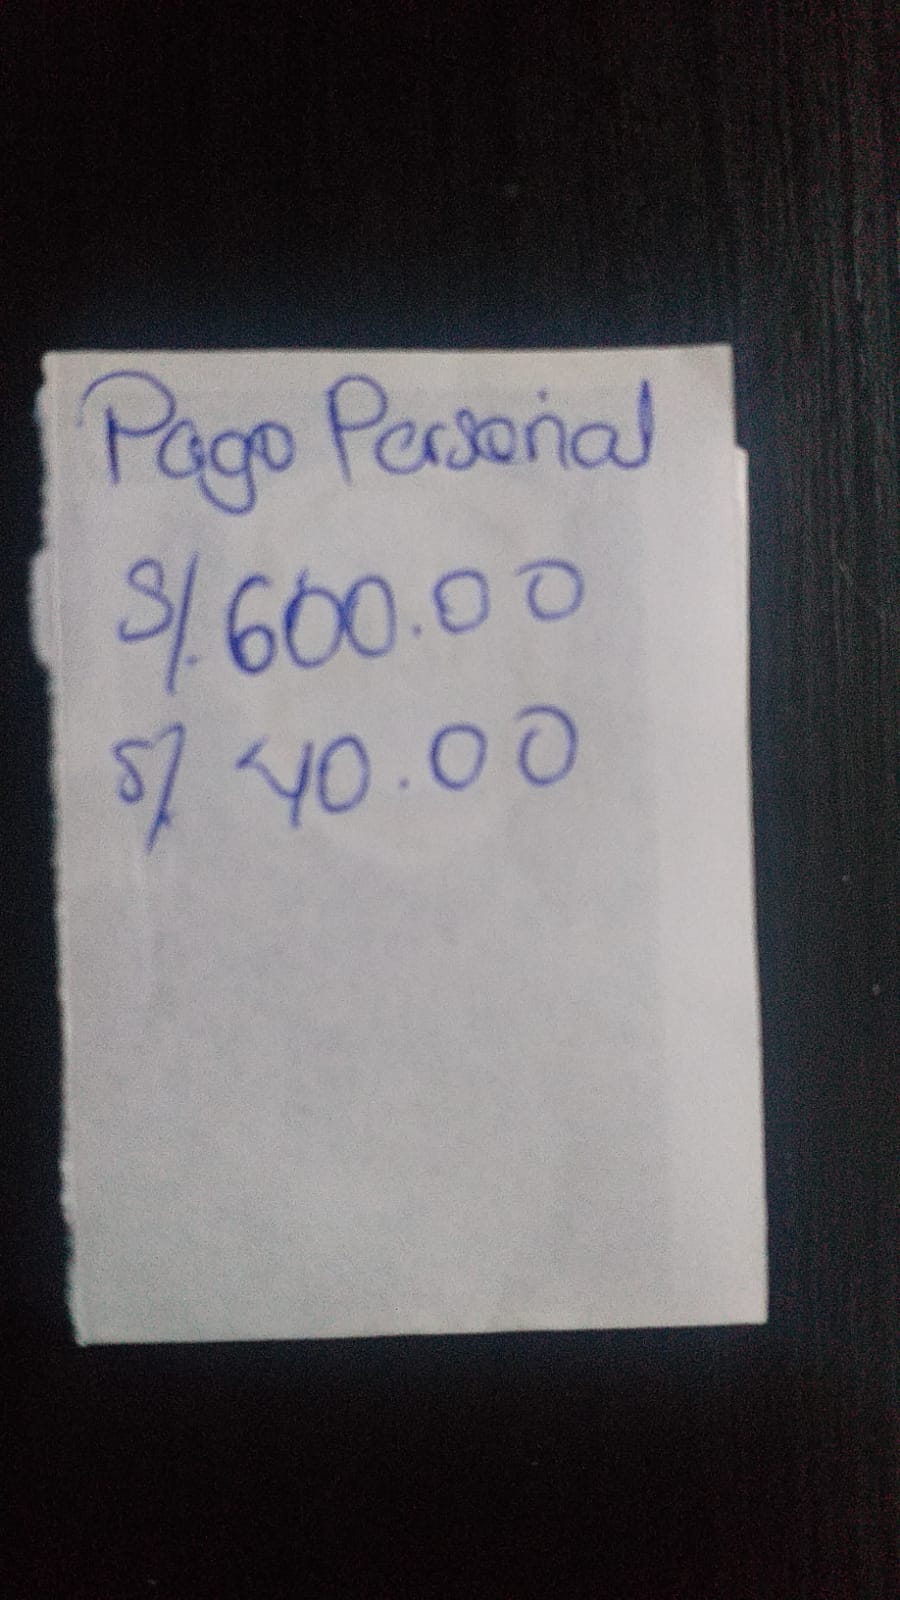 Pago Personal
S/.600.00
S/ 40.00